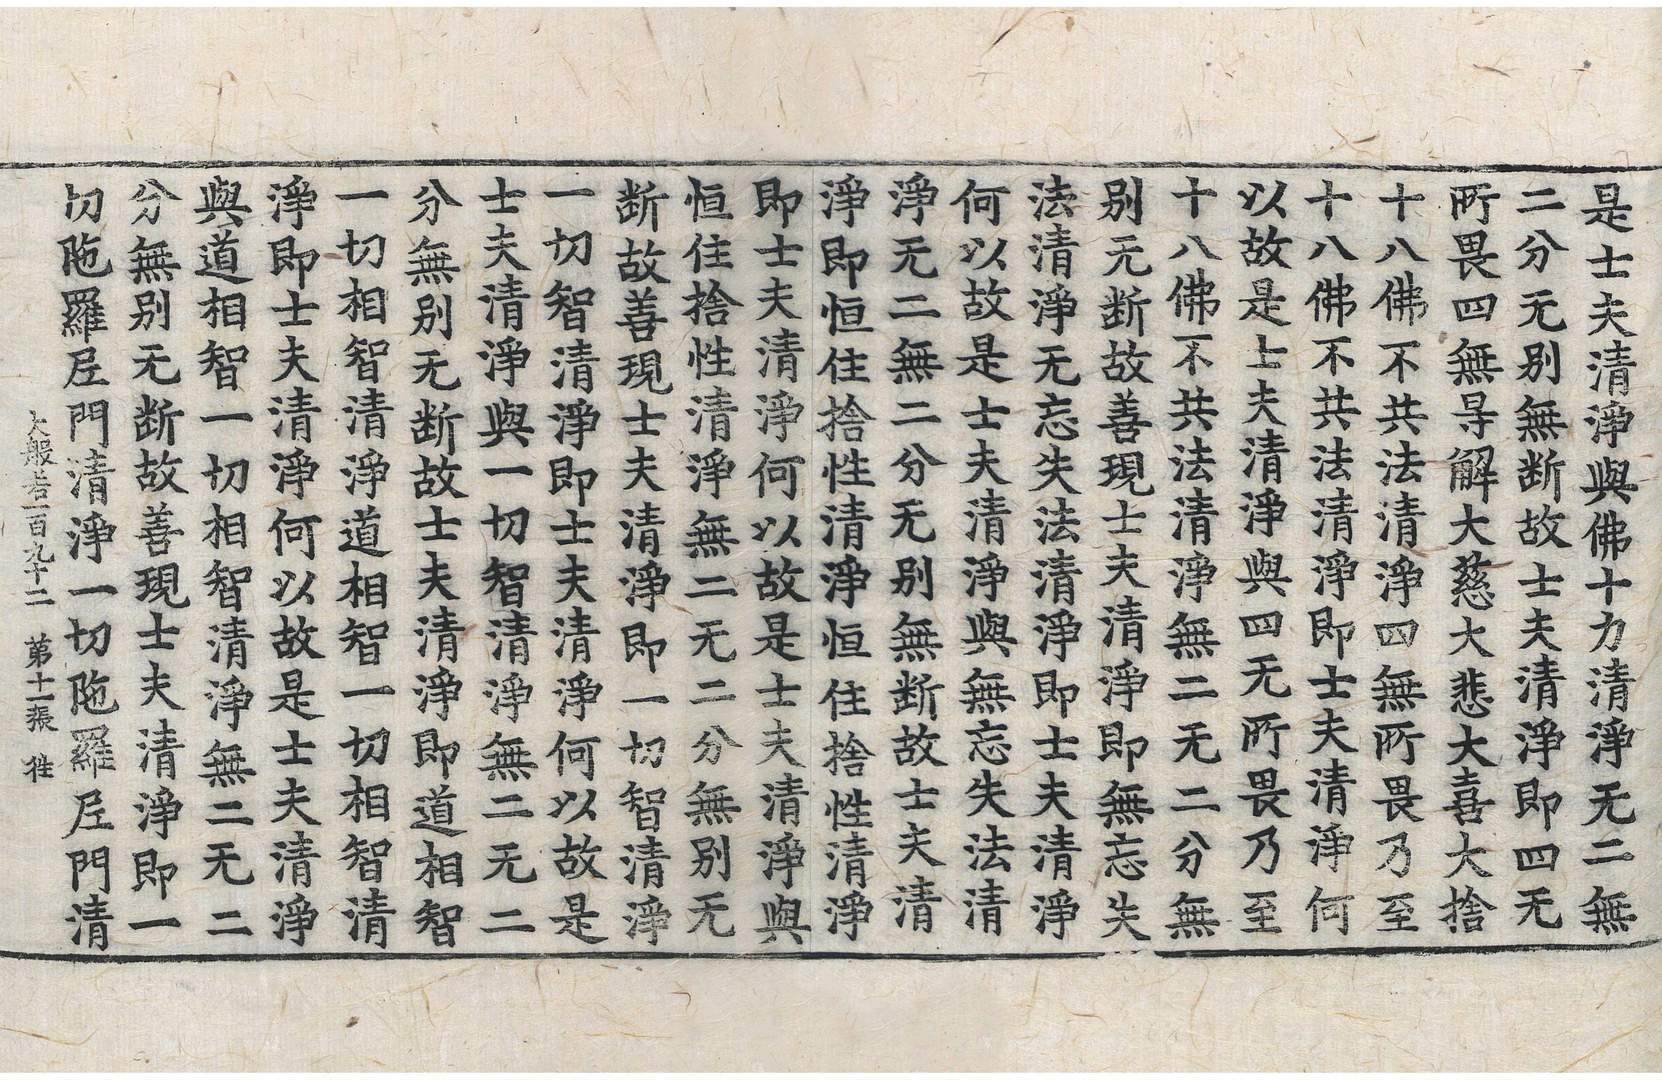 是士夫清淨與佛十力清淨无二無
二分无别無断故士夫清淨即四无
所畏四無㝵解大慈大悲大喜大捨
十八佛不共法清淨四無所畏乃至
十八佛不共法清淨即士夫清淨何
以故是士夫清淨與四无所畏乃至
十八佛不共法清淨無二无二分無
别无断故善現士夫清淨即無忘失
法清淨无忘失法清淨即士夫清淨
何以故是士夫清淨與無忘失法清
淨无二無二分无别無断故士夫清
淨即恒住捨性清淨恒住捨性清淨
即士夫清淨何以故是士夫清淨與
恒住捨性清淨無二无二分無别无
断故善現士夫清淨即一切智清淨
一切智清淨即士夫清淨何以故是
士夫清淨與一切智清淨無二无二
分無别无断故士夫清淨即道相智
一切相智清淨道相智一切相智清
淨即士夫清淨何以故是士夫清淨
與道相智一切相智清淨無二无二
分無别无断故善現士夫清淨即一
切陁羅𡰱門清淨一切陁羅𡰱門清
大般若一百九十二 第十一張